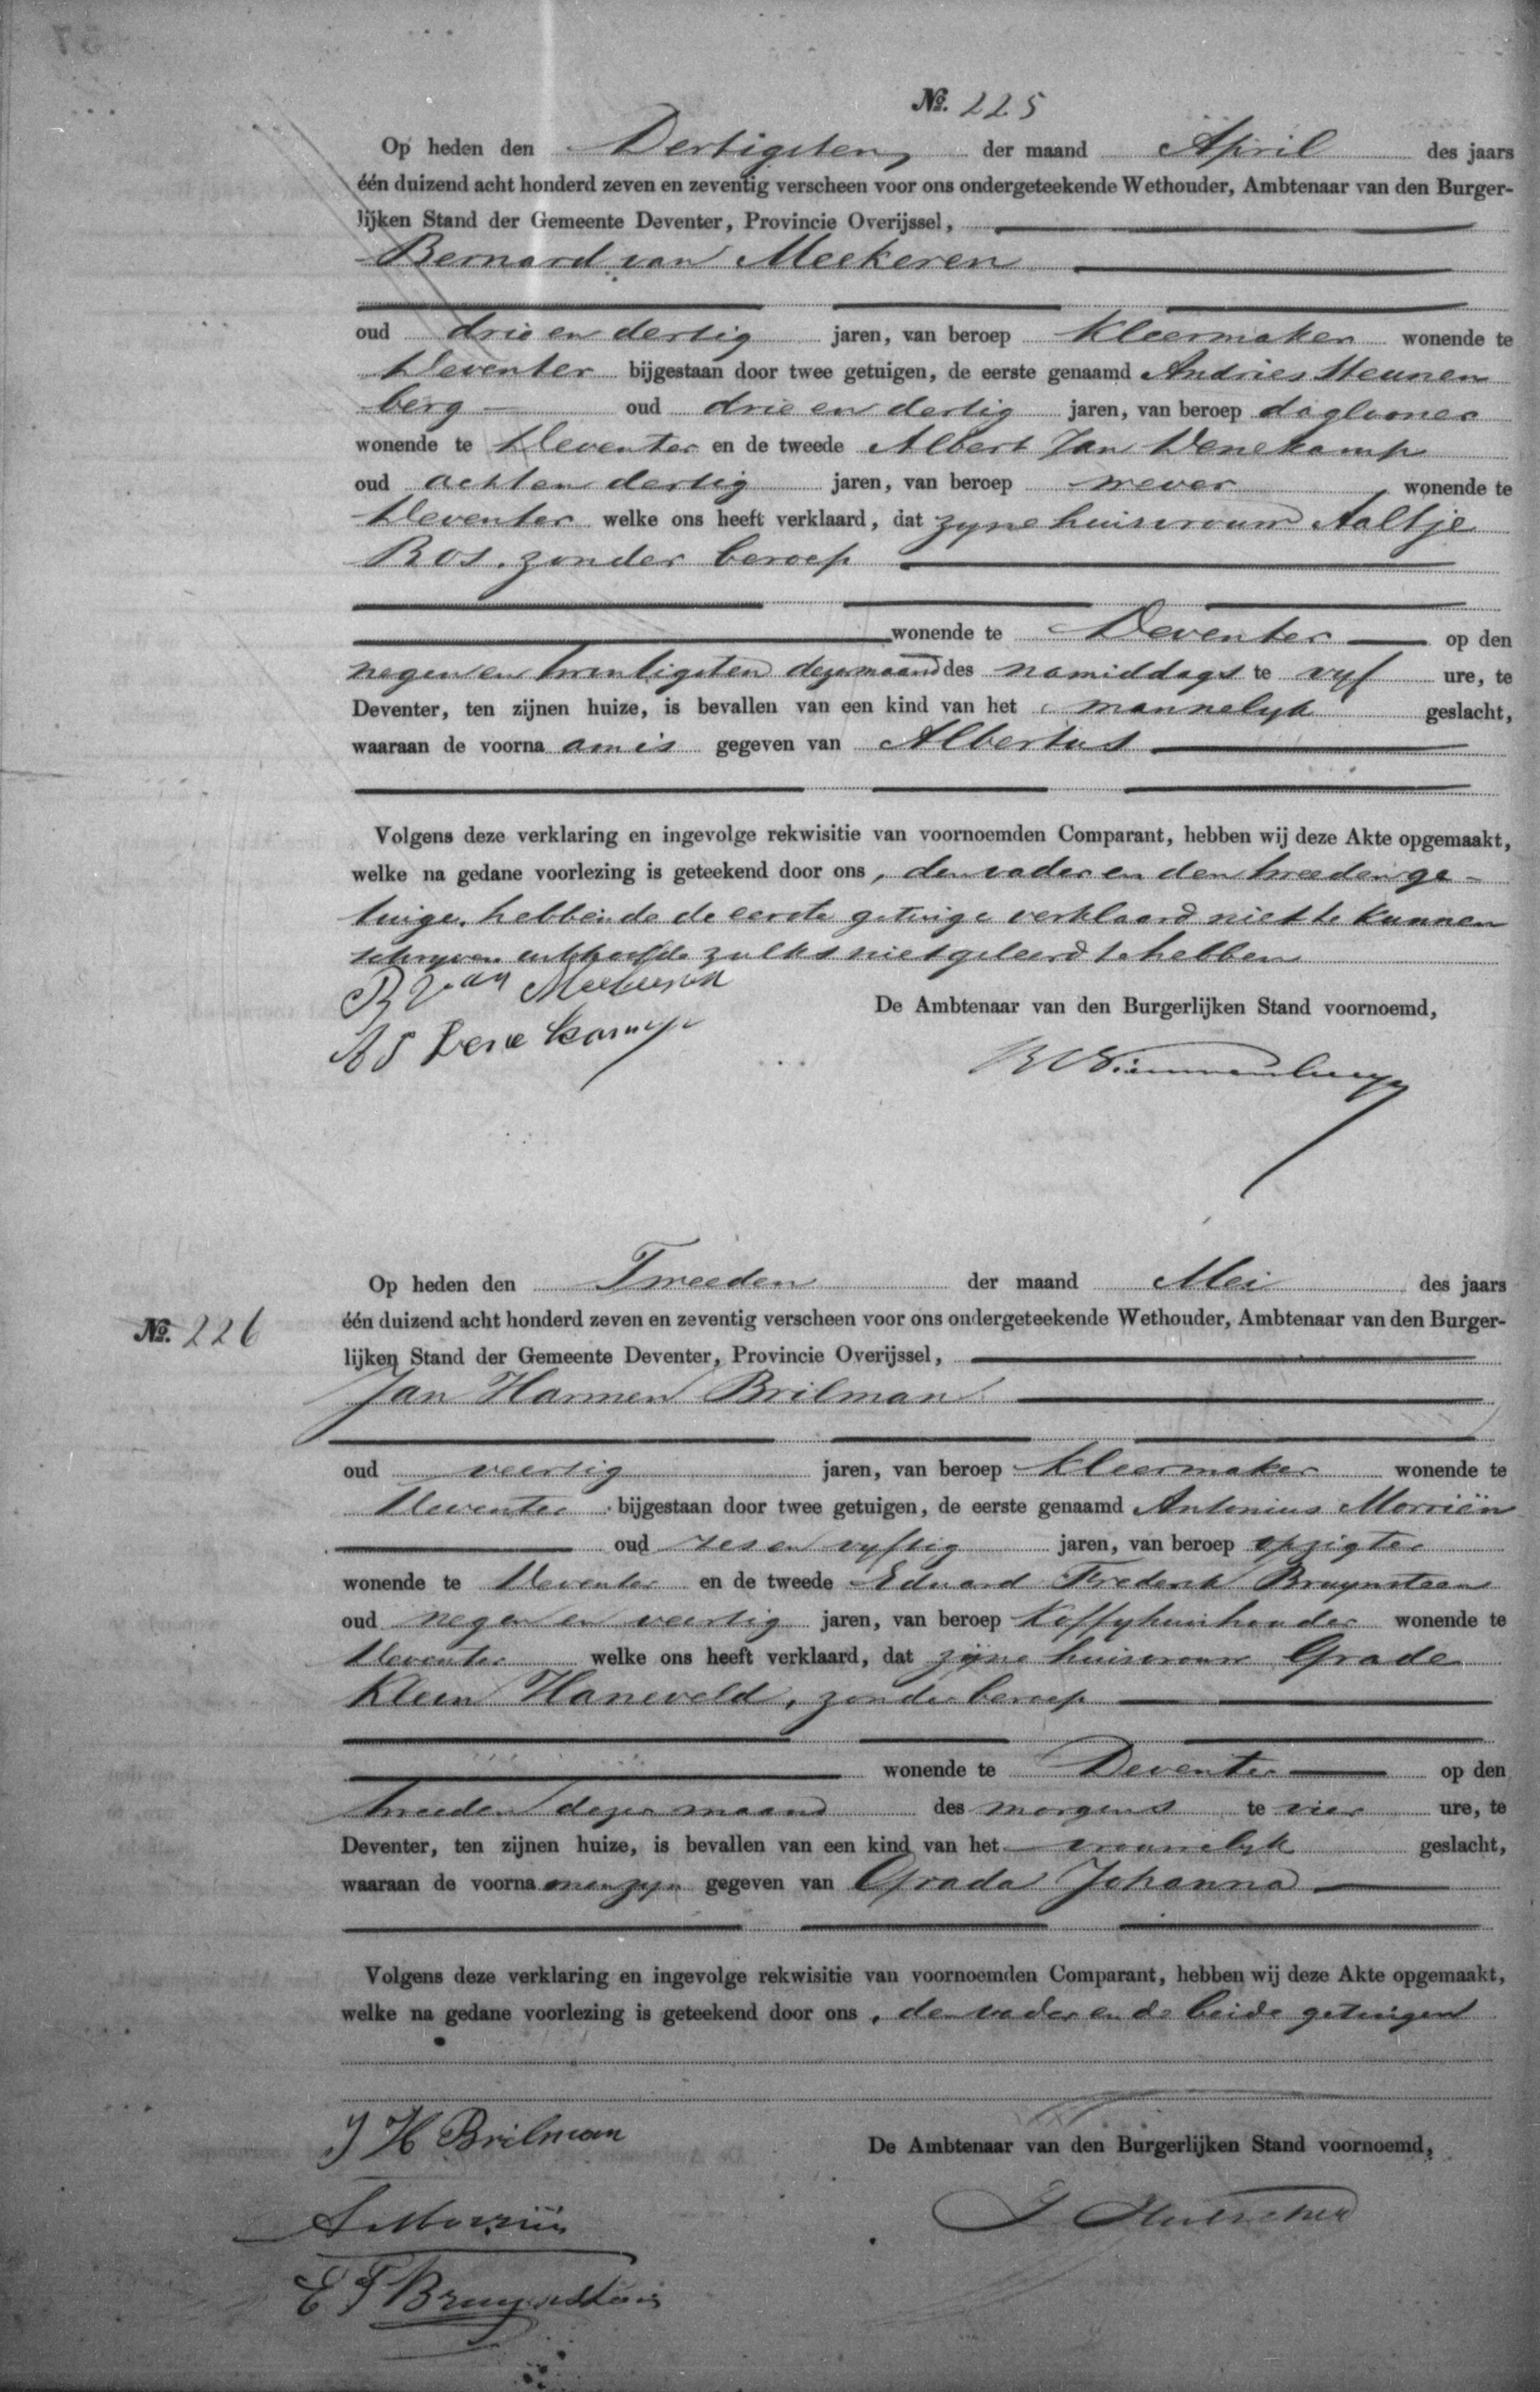 №. 225
Op heden den Dertigsten der maand April des jaars
één duizend acht honderd zeven en zeventig verscheen voor ons ondergeteekende Wethouder, Ambtenaar van den Burger-
lijken Stand der Gemeente Deventer, Provincie Overijssel,
Bernard van Meekeren
oud drie en dertig jaren, van beroep Kleermaker wonende te
Deventer bijgestaan door twee getuigen, de eerste genaamd Andries Steunen
berg oud drie en dertig jaren, van beroep daglooner
wonende te Deventer en de tweede Albert Jan Denekamp
oud acht en dertig jaren, van beroep wever wonende te
Deventer welke ons heeft verklaard, dat zyne huisvrouw Aaltje
Bos, zonder beroep
wonende te Deventer op den
negen en twintigsten dezer maand des namiddags te vyf ure, te
Deventer, ten zijnen huize, is bevallen van een kind van het mannelyk geslacht,
waaraan de voorna am is gegeven van Albertus
Volgens deze verklaring en ingevolge rekwisitie van voornoemden Comparant, hebben wij deze Akte opgemaakt,
welke na gedane voorlezing is geteekend door ons, den vader en den tweeden ge-
tuige, hebbende de eerste getuige verklaard niet te kunnen
schryven uit hoofde zulks niet geleerd te hebben
B van Meekeren
A J Denekamp
De Ambtenaar van den Burgerlijken Stand voornoemd,
№. 226
Op heden den Tweeden der maand Mei des jaars
één duizend acht honderd zeven en zeventig verscheen voor ons ondergeteekende Wethouder, Ambtenaar van den Burger-
lijken Stand der Gemeente Deventer, Provincie Overijssel,
Jan Harmen Brilman
oud veertig jaren, van beroep Kleermaker wonende te
Deventer bijgestaan door twee getuigen, de eerste genaamd Antonius Morriën
oud zes en vyftig jaren, van beroep opzigter
wonende te Deventer en de tweede Eduard Frederik Bruynsteen
oud negen en veertig jaren, van beroep Koffyhuishouder wonende te
Deventer welke ons heeft verklaard, dat zyne huisvrouw Grade
Klein Haneveld, zonder beroep
wonende te Deventer op den
tweeden dezer maand des morgens te vier ure, te
Deventer, ten zijnen huize, is bevallen van een kind van het vrouwelyk geslacht,
waaraan de voorna men zyn gegeven van Grada Johanna
Volgens deze verklaring en ingevolge rekwisitie van voornoemden Comparant, hebben wij deze Akte opgemaakt,
welke na gedane voorlezing is geteekend door ons, den vader en de beide getuigen
J H Brilman
De Ambtenaar van den Burgerlijken Stand voornoemd,
A Morriën
E F Bruynsteen